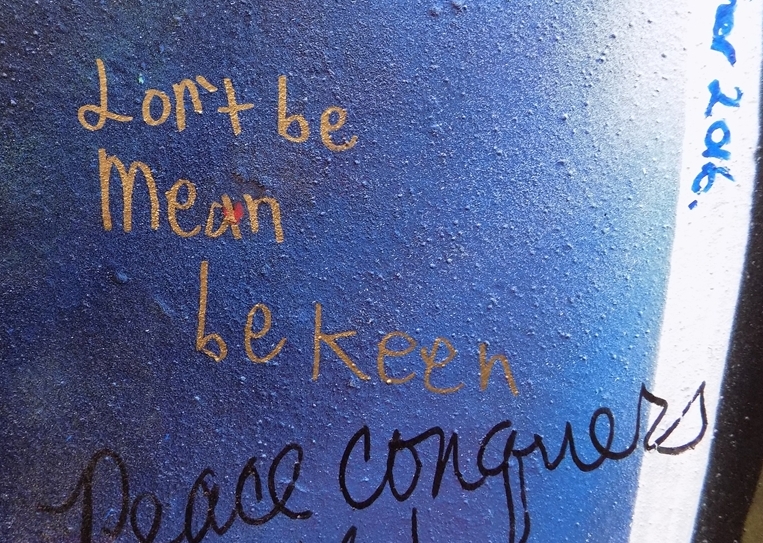 Don't be
Mean
be keen
Peace conquers
2016.